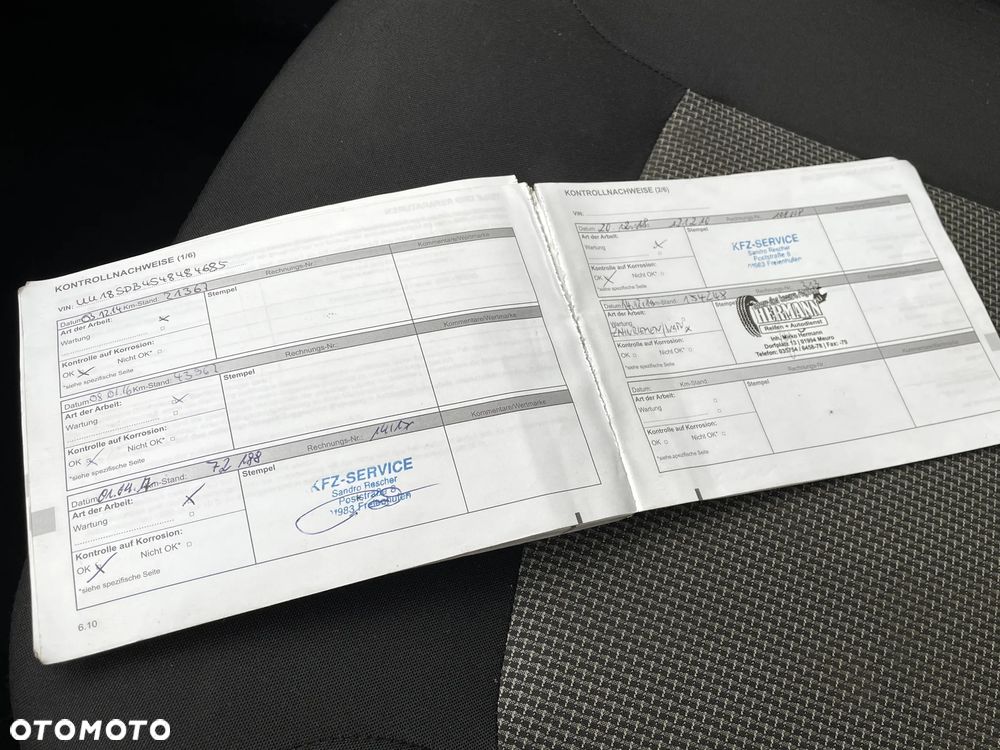 KONTROLLNACHWEISE (1/6)
VIN: UU18SDB4548484685
Datum 03.12.14 Km-Stand: 21367 Rechnungs-Nr.: Kommentare/Wertmarke
Art der Arbeit: Stempel
Wartung
Kontrolle auf Korrosion:
OK Nicht OK*
*siehe spezifische Seite
Datum 08.01.16 Km-Stand: 43367 Rechnungs-Nr.: Kommentare/Wertmarke
Art der Arbeit: Stempel
Wartung
Kontrolle auf Korrosion:
OK Nicht OK*
*siehe spezifische Seite
Datum 01.04.17 Km-Stand: 72 188 Rechnungs-Nr.: Kommentare/Wertmarke
Art der Arbeit: Stempel
Wartung
Kontrolle auf Korrosion:
OK Nicht OK*
*siehe spezifische Seite
KFZ-SERVICE
Sandro Rescher
Poststraße 8
01983 Freienhufen
6.10
KONTROLLNACHWEISE (2/6)
VIN:
Datum: 20 12.18 121210 Rechnungs-Nr.
Art der Arbeit: Stempel
Wartung
Kontrolle auf Korrosion:
OK Nicht OK*
KFZ-SERVICE
Sandro Rescher
Poststraße 8
01983 Freienhufen
Km-Stand: 134248
Art der Arbeit: Stempel
Wartung
Kontrolle auf Korrosion:
OK Nicht OK*
HERMANN
Reifen + Autodienst
Inh. Mirko Hermann
Dorfplatz 13 | 01994 Meuro
Telefon: 035754 / 6458-78 | Fax: -79
Datum: Km-Stand: Rechnungs-Nr.
Art der Arbeit: Stempel
Wartung
Kontrolle auf Korrosion:
OK Nicht OK*
*siehe spezifische Seite
OTOMOTO